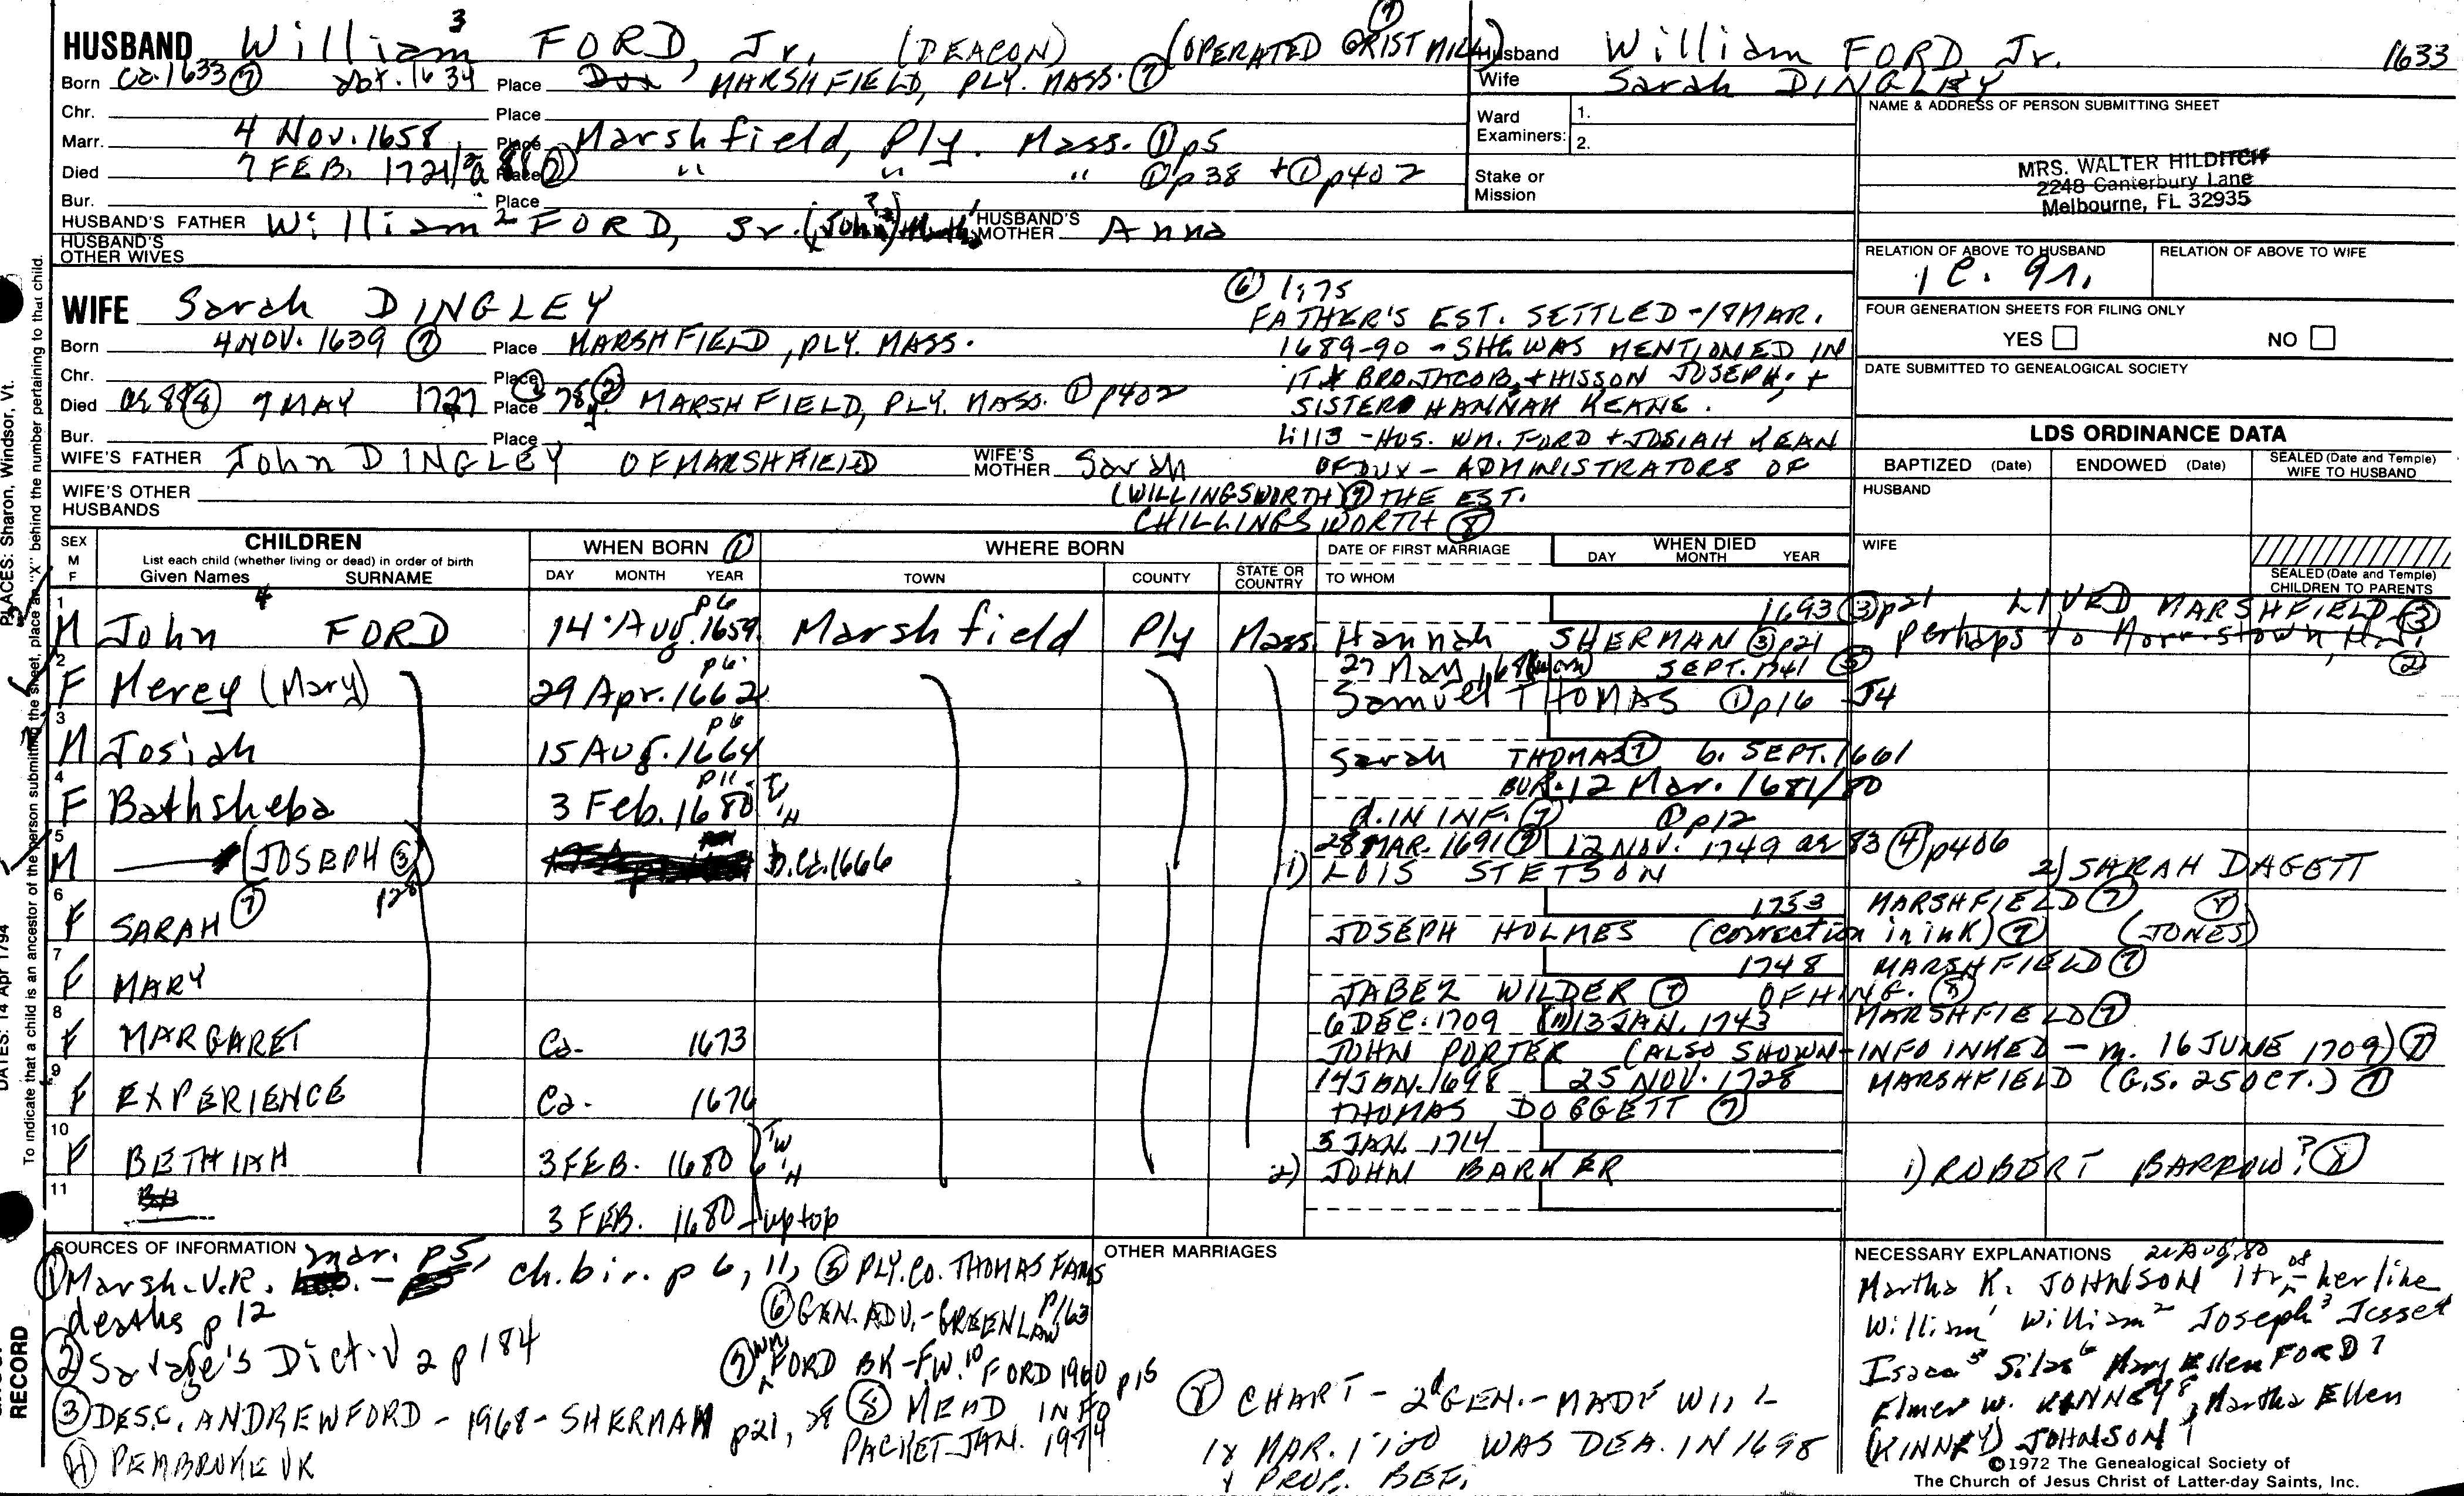 HUSBAND William 3 FORD, Jr. (DEACON) (OPERATED GRIST MILL) 7
Born Ca. 1633 7 abt. 1634 Place Dux MARSHFIELD, PLY. MASS. 7
Chr. Place
Marr. 4 Nov. 1658 Place Marshfield, Ply. Mass. 1 p5
Died 7 FEB. 1721/2 Place " " " 1 p38 + 1 p402
Bur. Place
HUSBAND'S FATHER William 2 FORD, Sr. (John) HUSBAND'S MOTHER Anna
HUSBAND'S OTHER WIVES
Husband William FORD Jr. 1633
Wife Sarah DINGLEY
Ward Examiners: 1.
2.
Stake or Mission
NAME & ADDRESS OF PERSON SUBMITTING SHEET
MRS. WALTER HILDITCH
2248 Canterbury Lane
Melbourne, FL 32935
RELATION OF ABOVE TO HUSBAND
RELATION OF ABOVE TO WIFE
1 C. 9 r.
FOUR GENERATION SHEETS FOR FILING ONLY
YES NO
DATE SUBMITTED TO GENEALOGICAL SOCIETY
WIFE Sarah DINGLEY
Born 4 NOV. 1639 7 Place MARSHFIELD, PLY. MASS.
Chr. Place
Died 7 MAY 1727 Place MARSHFIELD, PLY. MASS. 1 p402
Bur. Place
WIFE'S FATHER John DINGLEY OF MARSHFIELD WIFE'S MOTHER Sarah
(WILLINGSWORTH) 7
CHILLINGSWORTH 8
WIFE'S OTHER HUSBANDS
6 1:75
FATHER'S EST. SETTLED - 18 MAR.
1689-90 - SHE WAS MENTIONED IN
IT & BRO. JACOB, + HIS SON JOSEPH, +
SISTER HANNAH KEANE.
1:113 - HUS. WM. FORD + JOSIAH KEAN
OF DUX - ADMINISTRATORS OF
THE EST.
LDS ORDINANCE DATA
BAPTIZED (Date) ENDOWED (Date) SEALED (Date and Temple) WIFE TO HUSBAND
HUSBAND
WIFE
SEALED (Date and Temple) CHILDREN TO PARENTS
SEX M F
CHILDREN
List each child (whether living or dead) in order of birth
Given Names SURNAME
WHEN BORN 1
DAY MONTH YEAR
WHERE BORN
TOWN COUNTY STATE OR COUNTRY
DATE OF FIRST MARRIAGE
TO WHOM
WHEN DIED
DAY MONTH YEAR
1 M John 4 FORD 14 Aug. 1659 p6 Marshfield Ply Mass. Hannah SHERMAN 3 p21 1693 3 p21 LIVED MARSHFIELD 3
perhaps to Morristown, N.J. 2
2 F Mercy (Mary) 29 Apr. 1662 p6 27 May SEPT. 1741 5
Samuel THOMAS 1 p16 J4
3 M Josiah 15 Aug. 1664 p6 Sarah THOMAS 7 b. SEPT. 1661
4 F Bathsheba 3 Feb. 1680 p11 BUR. 12 Mar. 1681/80
d. IN INF. 7 1 p12
5 M (JOSEPH 3) p28 b. Ca. 1666 28 MAR. 1691 7 12 NOV. 1749 ae 83 4 p406
1) LOIS STETSON 2) SARAH DAGETT
6 F SARAH 7 1753 MARSHFIELD 7 8
JOSEPH HOLMES (correction in ink) 7 (JONES)
7 F MARY 1748 MARSHFIELD 7
JABEZ WILDER 7 OF HING. 8
8 F MARGARET Ca. 1673 6 DEC. 1709 13 JAN. 1743 MARSHFIELD 7
JOHN PORTER (ALSO SHOWN - INFO INKED - m. 16 JUNE 1709) 7
9 F EXPERIENCE Ca. 1676 14 JAN. 1698 25 NOV. 1728 MARSHFIELD (G.S. 25 OCT.) 7
THOMAS DOGGETT 7
10 F BETHIAH 3 FEB. 1680 TW 5 JAN. 1714
2) JOHN BARKER 1) ROBERT BARROW? 8
11 3 FEB. 1680 - up top
SOURCES OF INFORMATION
1 Marsh. V.R. mar. p5, ch. bir. p 6, 11,
deaths p 12
2 Savage's Dict. V 2 p 184
3 DESC. ANDREW FORD - 1968 - SHERMAN p21, 28
4 PEMBROKE VR
5 PLY. CO. THOMAS FAMS
6 GEN. ADV. - GREENLAW P163
7 WM FORD BK - F.W. 10 FORD 1960 p15
8 MEAD INFO
PACKET JAN. 1974
OTHER MARRIAGES
8 CHART - 2d GEN. - MADE WILL
18 MAR. WAS DEA. IN 1698
+ PROP. BEF.
NECESSARY EXPLANATIONS
Martha K. JOHNSON ltr of 21 Aug. 80 - her line
William 1 William 2 Joseph 3 Jesse 4
Isaac 5 Silas 6 Mary Ellen FORD 7
Elmer W. KINNEY 8, Martha Ellen
(KINNEY) JOHNSON 9
©1972 The Genealogical Society of
The Church of Jesus Christ of Latter-day Saints, Inc.
PLACES: Sharon, Windsor, Vt.
DATES: 14 Apr 1794
To indicate that a child is an ancestor of the person submitting the sheet, place an "X" behind the number pertaining to that child.
RECORD